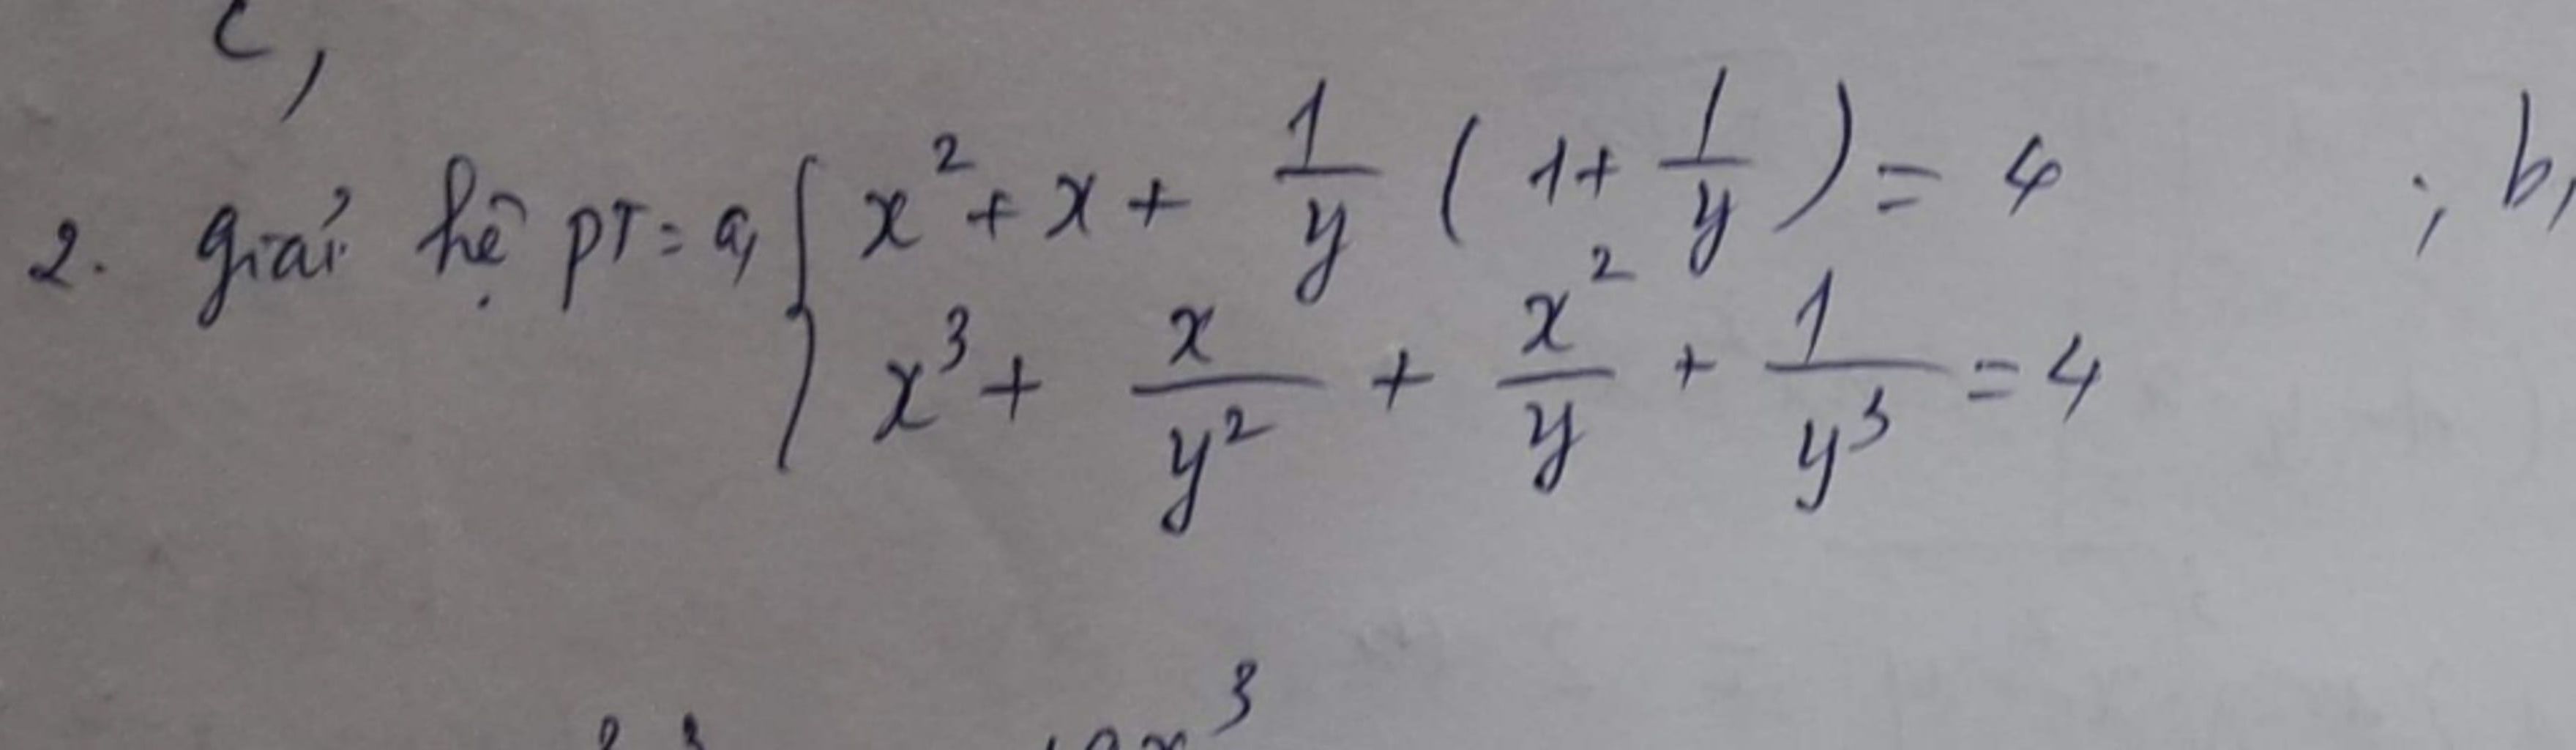 c,
2. giải hệ PT: a, { x² + x + 1/y (1 + 1/y) = 4 ; b,
x³ + x/y² + x²/y + 1/y³ = 4